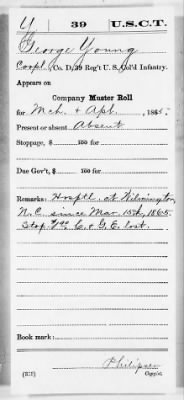 Y 39 U.S.C.T.
George Young
Corpl, Co. D, 39 Reg't U. S. Col'd Infantry.
Appears on
Company Muster Roll
for Mch & Apl, 1865.
Present or absent Absent
Stoppage, $ 100 for
Due Gov't, $ 100 for
Remarks: Hosptl. at Wilmington
N.C. since Mar 15th, 1865
Stop. for C. & G. E. lost.
Book mark:
(361) Copyist.